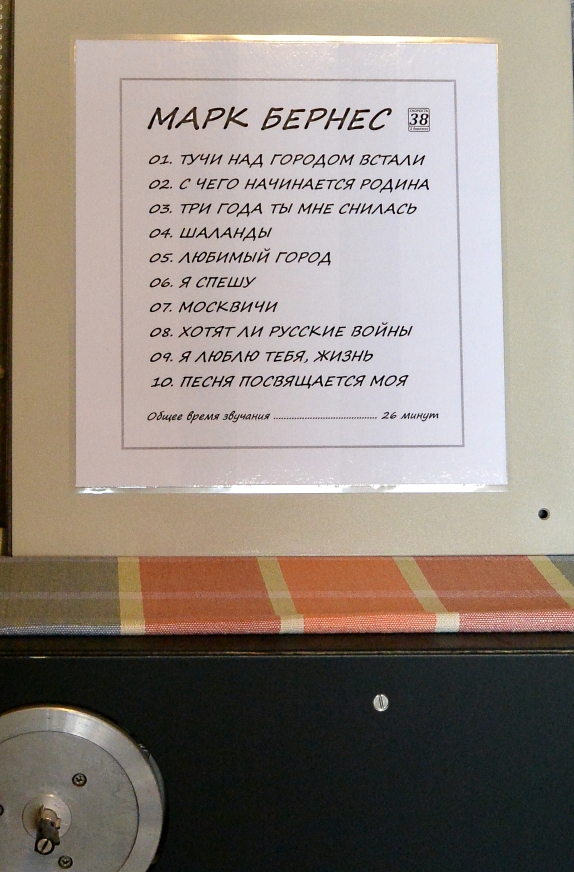 МАРК БЕРНЕС
СКОРОСТЬ
38
2 дорожки
01. ТУЧИ НАД ГОРОДОМ ВСТАЛИ
02. С ЧЕГО НАЧИНАЕТСЯ РОДИНА
03. ТРИ ГОДА ТЫ МНЕ СНИЛАСЬ
04. ШАЛАНДЫ
05. ЛЮБИМЫЙ ГОРОД
06. Я СПЕШУ
07. МОСКВИЧИ
08. ХОТЯТ ЛИ РУССКИЕ ВОЙНЫ
09. Я ЛЮБЛЮ ТЕБЯ, ЖИЗНЬ
10. ПЕСНЯ ПОСВЯЩАЕТСЯ МОЯ
Общее время звучания ........................................ 26 минут